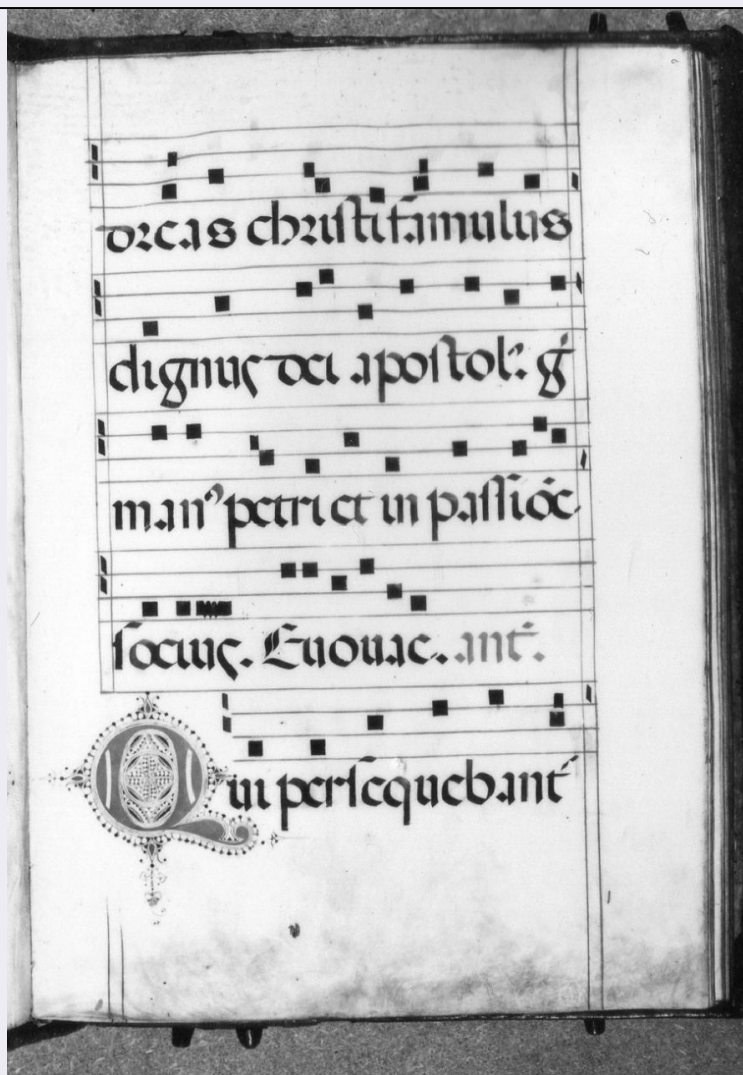 dreas christi famulus
dignus dei apostol' g̃
man⁹ petri et in passiõe
socius. Euouae. ant̃.
Qui persequebant̃